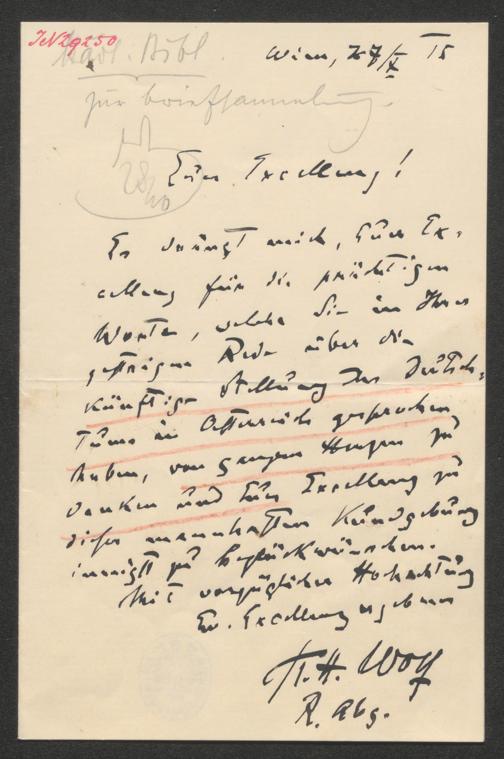 Wien, 27/X 15
zur Briefsammlung.
28/10
Euer Excellenz!
Es drängt mich, Euer Ex-
cellenz für die prächtigen
Worte, welche Sie in Ihrer
gestrigen Rede über die
künftige Stellung des Deutsch-
tums in Österreich gesprochen
haben, von ganzem Herzen zu
danken und Euer Excellenz zu
dieser mannhaften Kundgebung
innigst zu beglückwünschen.
Mit vorzüglicher Hochachtung
Ew. Excellenz ergebener
K. H. Wolf
R. Abg.